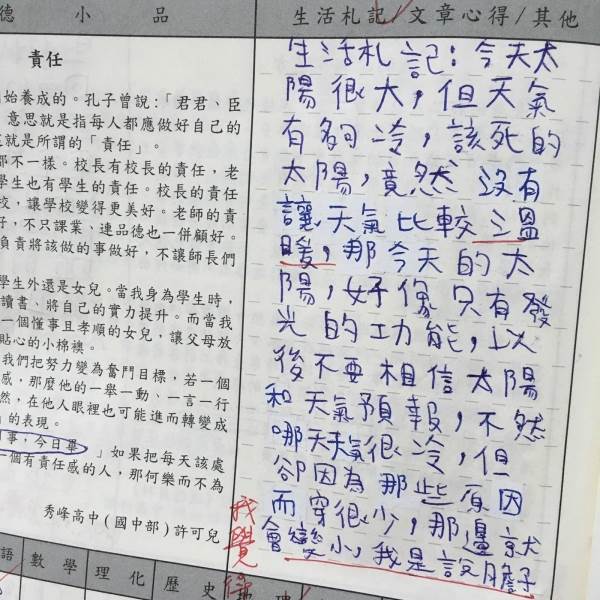 德小品
生活札記/文章心得/其他
責任
始養成的。孔子曾說:「君君、臣
意思就是指每人都應做好自己的
就是所謂的「責任」。
都不一樣。校長有校長的責任,老
學生也有學生的責任。校長的責任
校,讓學校變得更美好。老師的責
好,不只課業、連品德也一併顧好。
負責將該做的事做好,不讓師長們
學生外還是女兒。當我身為學生時,
讀書、將自己的實力提升。而當我
一個懂事且孝順的女兒,讓父母放
貼心的小棉襖。
我們把努力變為奮鬥目標,若一個
感,那麼他的一舉一動、一言一行
然,在他人眼裡也可能進而轉變成
的表現。
事,今日畢 」如果把每天該處
一個有責任感的人,那何樂而不為
秀峰高中(國中部)許可兒
生活札記:今天太
陽很大,但天氣
有夠冷,該死的
太陽,竟然沒有
讓天氣比較溫
暖,那今天的太
陽,好像只有發
光的功能,以
後不要相信太陽
和天氣預報,不然
哪天天氣很冷,但
卻因為那些原因
而穿很少,那邊就
會變小,我是說膽子
我覺得
語 數學 理化 歷史 地理